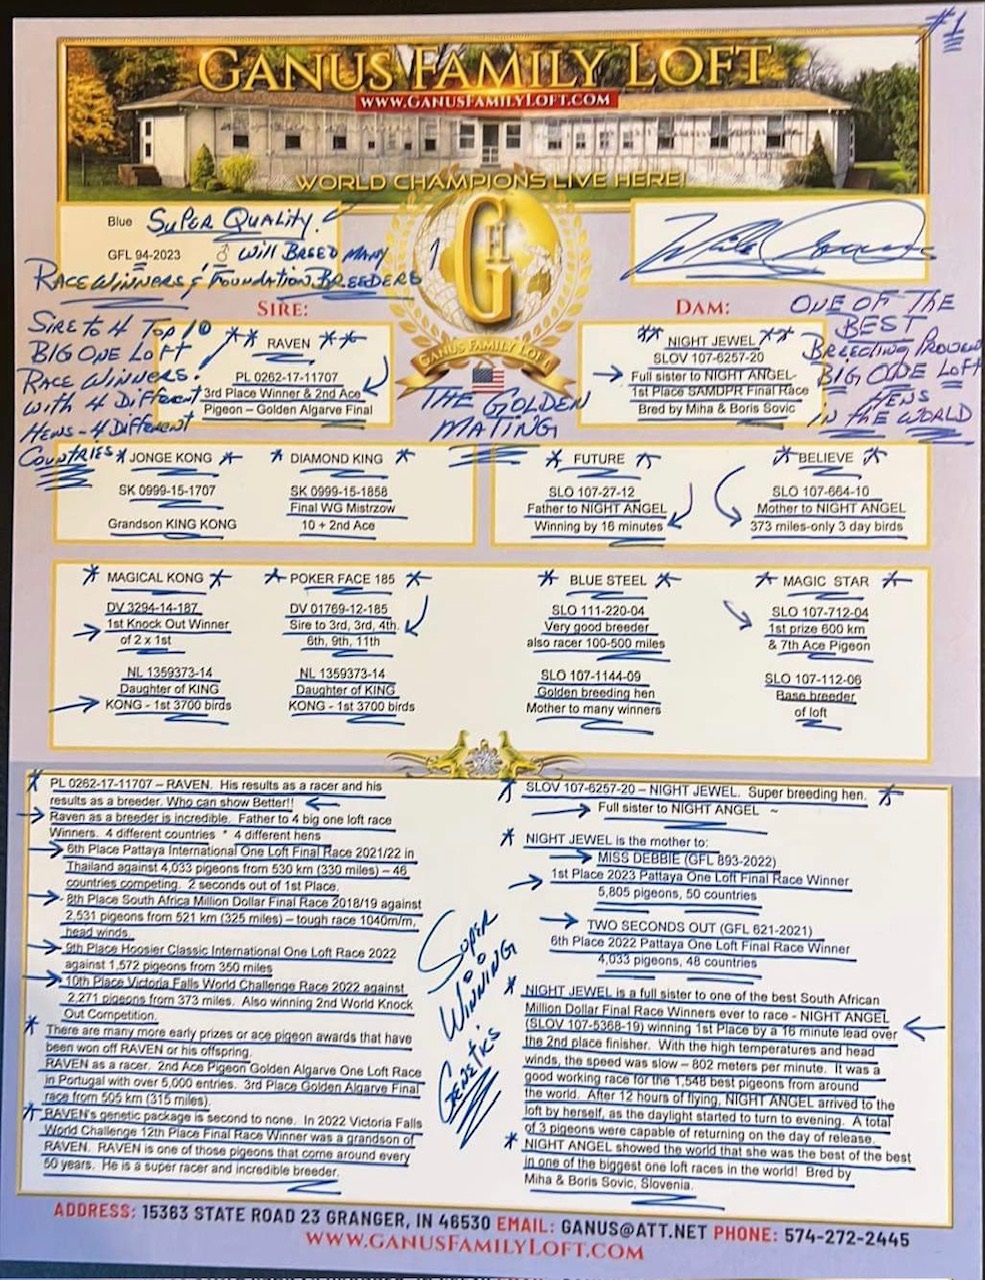 #1
GANUS FAMILY LOFT
WWW.GANUSFAMILYLOFT.COM
WORLD CHAMPIONS LIVE HERE!
Blue SUPER QUALITY.
GFL 94-2023 ♂ WILL BREED MANY
RACE WINNERS & FOUNDATION BREEDERS
GHL
GANUS FAMILY LOFT
SIRE:
SIRE TO 4 TOP 10
BIG ONE LOFT
RACE WINNERS.
WITH 4 DIFFERENT
HENS - 4 DIFFERENT
COUNTRIES
** RAVEN **
PL 0262-17-11707
3rd Place Winner & 2nd Ace
Pigeon – Golden Algarve Final
THE GOLDEN
MATING
DAM:
** NIGHT JEWEL **
SLOV 107-6257-20
Full sister to NIGHT ANGEL-
1st Place SAMDPR Final Race
Bred by Miha & Boris Sovic
ONE OF THE
BEST
BREEDING PROVEN
BIG ONE LOFT
HENS
IN THE WORLD
* JONGE KONG *
SK 0999-15-1707
Grandson KING KONG
* DIAMOND KING *
SK 0999-15-1858
Final WG Mistrzow
10 + 2nd Ace
* FUTURE *
SLO 107-27-12
Father to NIGHT ANGEL
Winning by 16 minutes
* BELIEVE *
SLO 107-664-10
Mother to NIGHT ANGEL
373 miles-only 3 day birds
* MAGICAL KONG *
DV 3294-14-187
1st Knock Out Winner
of 2 x 1st
NL 1359373-14
Daughter of KING
KONG - 1st 3700 birds
* POKER FACE 185 *
DV 01769-12-185
Sire to 3rd, 3rd, 4th,
6th, 9th, 11th
NL 1359373-14
Daughter of KING
KONG - 1st 3700 birds
* BLUE STEEL *
SLO 111-220-04
Very good breeder
also racer 100-500 miles
SLO 107-1144-09
Golden breeding hen
Mother to many winners
* MAGIC STAR *
SLO 107-712-04
1st prize 600 km
& 7th Ace Pigeon
SLO 107-112-06
Base breeder
of loft
* PL 0262-17-11707 – RAVEN. His results as a racer and his
results as a breeder. Who can show Better!!
Raven as a breeder is incredible. Father to 4 big one loft race
Winners. 4 different countries * 4 different hens
6th Place Pattaya International One Loft Final Race 2021/22 in
Thailand against 4,033 pigeons from 530 km (330 miles) – 46
countries competing. 2 seconds out of 1st Place.
8th Place South Africa Million Dollar Final Race 2018/19 against
2,531 pigeons from 521 km (325 miles) – tough race 1040m/m,
head winds.
9th Place Hoosier Classic International One Loft Race 2022
against 1,572 pigeons from 350 miles
10th Place Victoria Falls World Challenge Race 2022 against
2,271 pigeons from 373 miles. Also winning 2nd World Knock
Out Competition.
* There are many more early prizes or ace pigeon awards that have
been won off RAVEN or his offspring.
RAVEN as a racer. 2nd Ace Pigeon Golden Algarve One Loft Race
in Portugal with over 5,000 entries. 3rd Place Golden Algarve Final
race from 505 km (315 miles).
* RAVEN's genetic package is second to none. In 2022 Victoria Falls
World Challenge 12th Place Final Race Winner was a grandson of
RAVEN. RAVEN is one of those pigeons that come around every
50 years. He is a super racer and incredible breeder.
SUPER
WINNING
GENETICS
* SLOV 107-6257-20 – NIGHT JEWEL. Super breeding hen. *
Full sister to NIGHT ANGEL ~
* NIGHT JEWEL is the mother to:
MISS DEBBIE (GFL 893-2022)
1st Place 2023 Pattaya One Loft Final Race Winner
5,805 pigeons, 50 countries
TWO SECONDS OUT (GFL 621-2021)
6th Place 2022 Pattaya One Loft Final Race Winner
4,033 pigeons, 48 countries
* NIGHT JEWEL is a full sister to one of the best South African
Million Dollar Final Race Winners ever to race - NIGHT ANGEL
(SLOV 107-5368-19) winning 1st Place by a 16 minute lead over
the 2nd place finisher. With the high temperatures and head
winds, the speed was slow – 802 meters per minute. It was a
good working race for the 1,548 best pigeons from around
the world. After 12 hours of flying, NIGHT ANGEL arrived to the
loft by herself, as the daylight started to turn to evening. A total
of 3 pigeons were capable of returning on the day of release.
* NIGHT ANGEL showed the world that she was the best of the best
in one of the biggest one loft races in the world! Bred by
Miha & Boris Sovic, Slovenia.
ADDRESS: 15363 STATE ROAD 23 GRANGER, IN 46530 EMAIL: GANUS@ATT.NET PHONE: 574-272-2445
WWW.GANUSFAMILYLOFT.COM